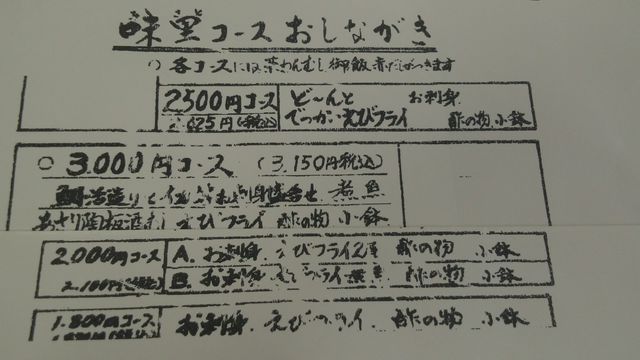 味里コースおしながき
○各コースには茶わんむし御飯赤だしがつきます
2500円コース ど〜んと お刺身
2.625円(税込) でっかいえびフライ 酢の物 小鉢
○3.000円コース (3.150円税込)
鯛活造り お刺身盛合せ 煮魚
あさり陶板酒むし えびフライ 酢の物 小鉢
2.000円コース A. お刺身 えびフライ2尾 酢の物 小鉢
2.100円(税込) B. お刺身 えびフライ 酢の物 小鉢
1.800円コース お刺身. えびフライ. 酢の物. 小鉢